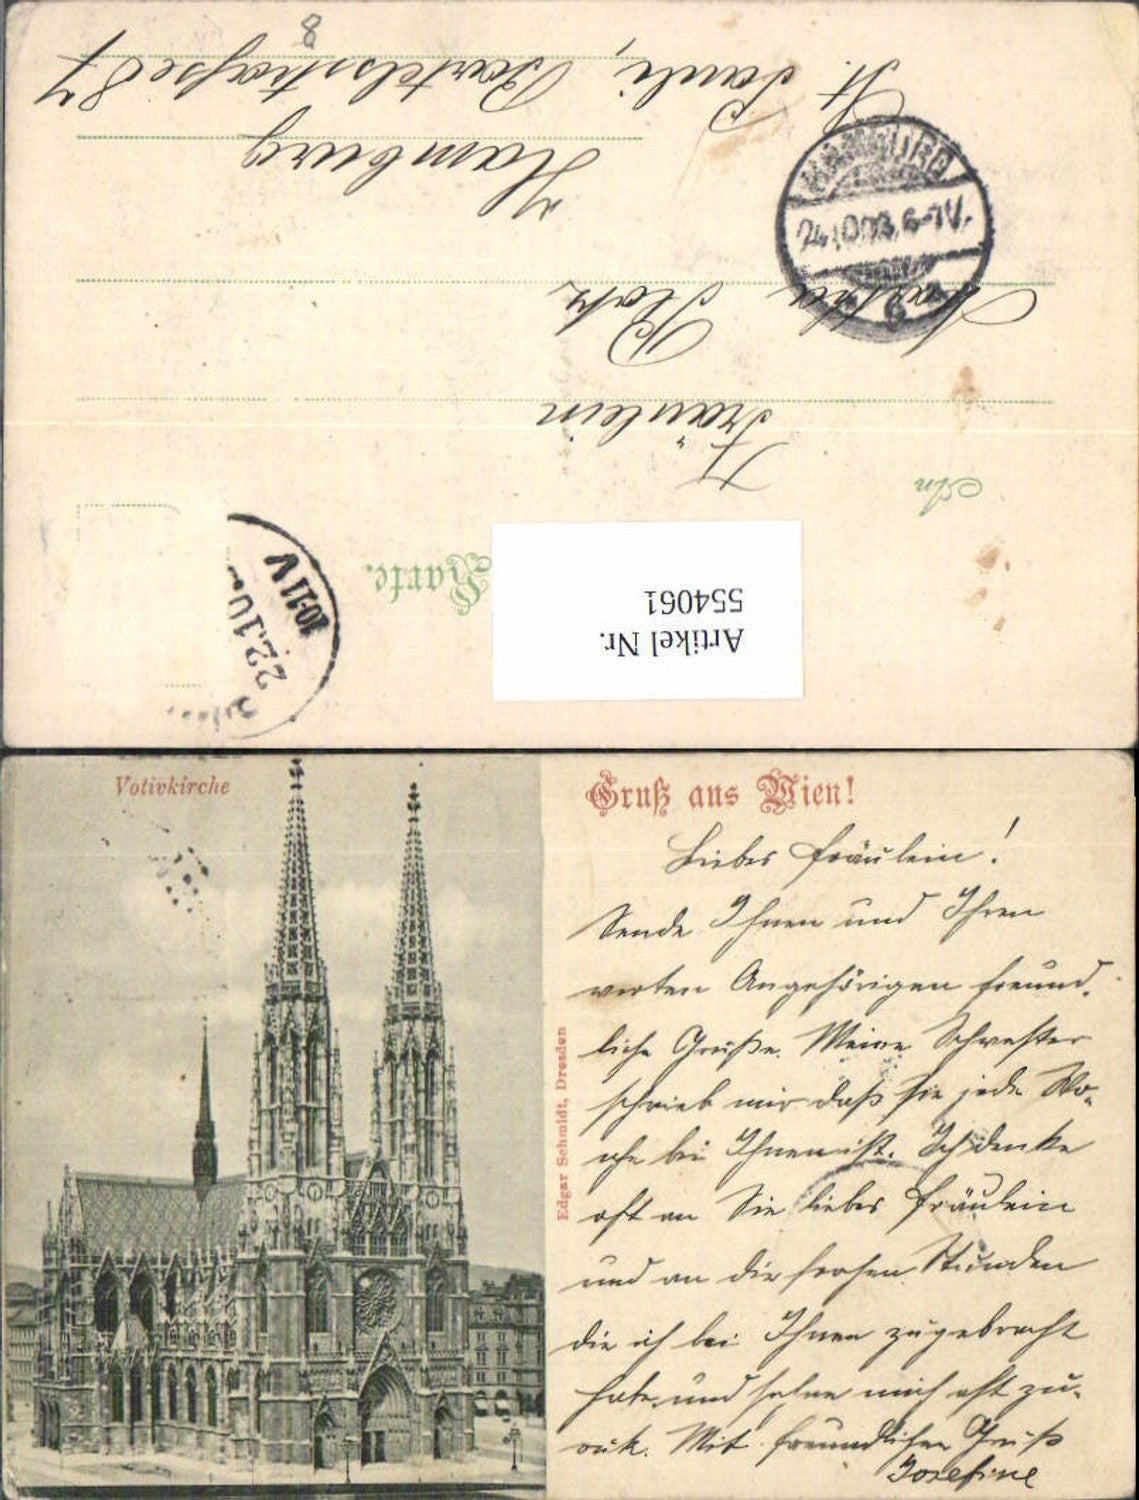 Artikel Nr.
554061
Karte.
22.10
10-11V
An
Fräulein
Martha Plotz
Hamburg
St. Pauli, Bartelsstrasse 87
8
HAMBURG
24.10.03. 6-7V.
6
Votivkirche
Gruß aus Wien!
Edgar Schmidt, Dresden
Liebes Fräulein!
Sende Ihnen und Ihren
werten Angehörigen freund-
liche Grüße. Meine Schwester
schrieb mir daß sie jede Wo-
che bei Ihnen ist. Ich denke
oft an Sie liebes Fräulein
und an die frohen Stunden
die ich bei Ihnen zugebracht
habe und sehne mich oft zu-
rük. Mit freundlichen Gruß
Josefine